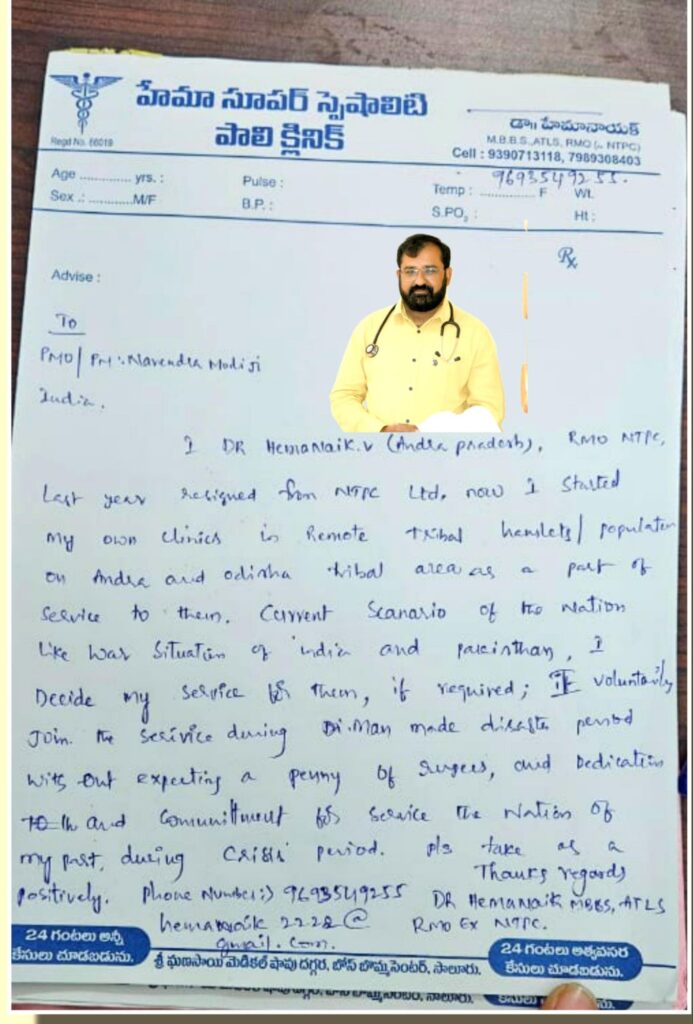 హేమా సూపర్ స్పెషాలిటి
పాలి క్లినిక్
Regd No. 66019
డా|| హేమానాయక్
M.B.B.S.,ATLS, RMO (.. NTPC)
Cell : 9390713118, 7989308403
9693549255.
Age .............. yrs. :
Pulse :
Temp : .............. F Wt.
Sex .: ............M/F
B.P. :
S.PO2 :
Ht :
Rx
Advise :
To
PMO/ PM :. Narendra Modi ji
India.
I DR HemaNaik.v (Andra pradesh), RMO NTPC,
Last year resigned from NTPC Ltd. now I started
my own clinics in Remote tribal hamlets/ population
on Andra and odisha tribal area as a part of
service to them. Current Scanario of the Nation
like war situation of india and pakisthan, I
Decide my service for them, if required; voluntarily
Join the service during Man made disaster period
with out expecting a penny of rupees, and Dedication
and Commuittment for service the Nation of
my part, during crisis period. pls take as a
positively.
Thanks regards
Phone Number:) 9693549255
DR HemaNaik MBBS, ATLS
hemanaik 2228@
gmail.com.
RMO Ex NTPC.
24 గంటలు అన్నీ
కేసులు చూడబడును.
శ్రీ ఘణసాయి మెడికల్ షాపు దగ్గర, బోస్ బొమ్మసెంటర్, సాలూరు.
24 గంటలు అత్యవసర
కేసులు చూడబడును.